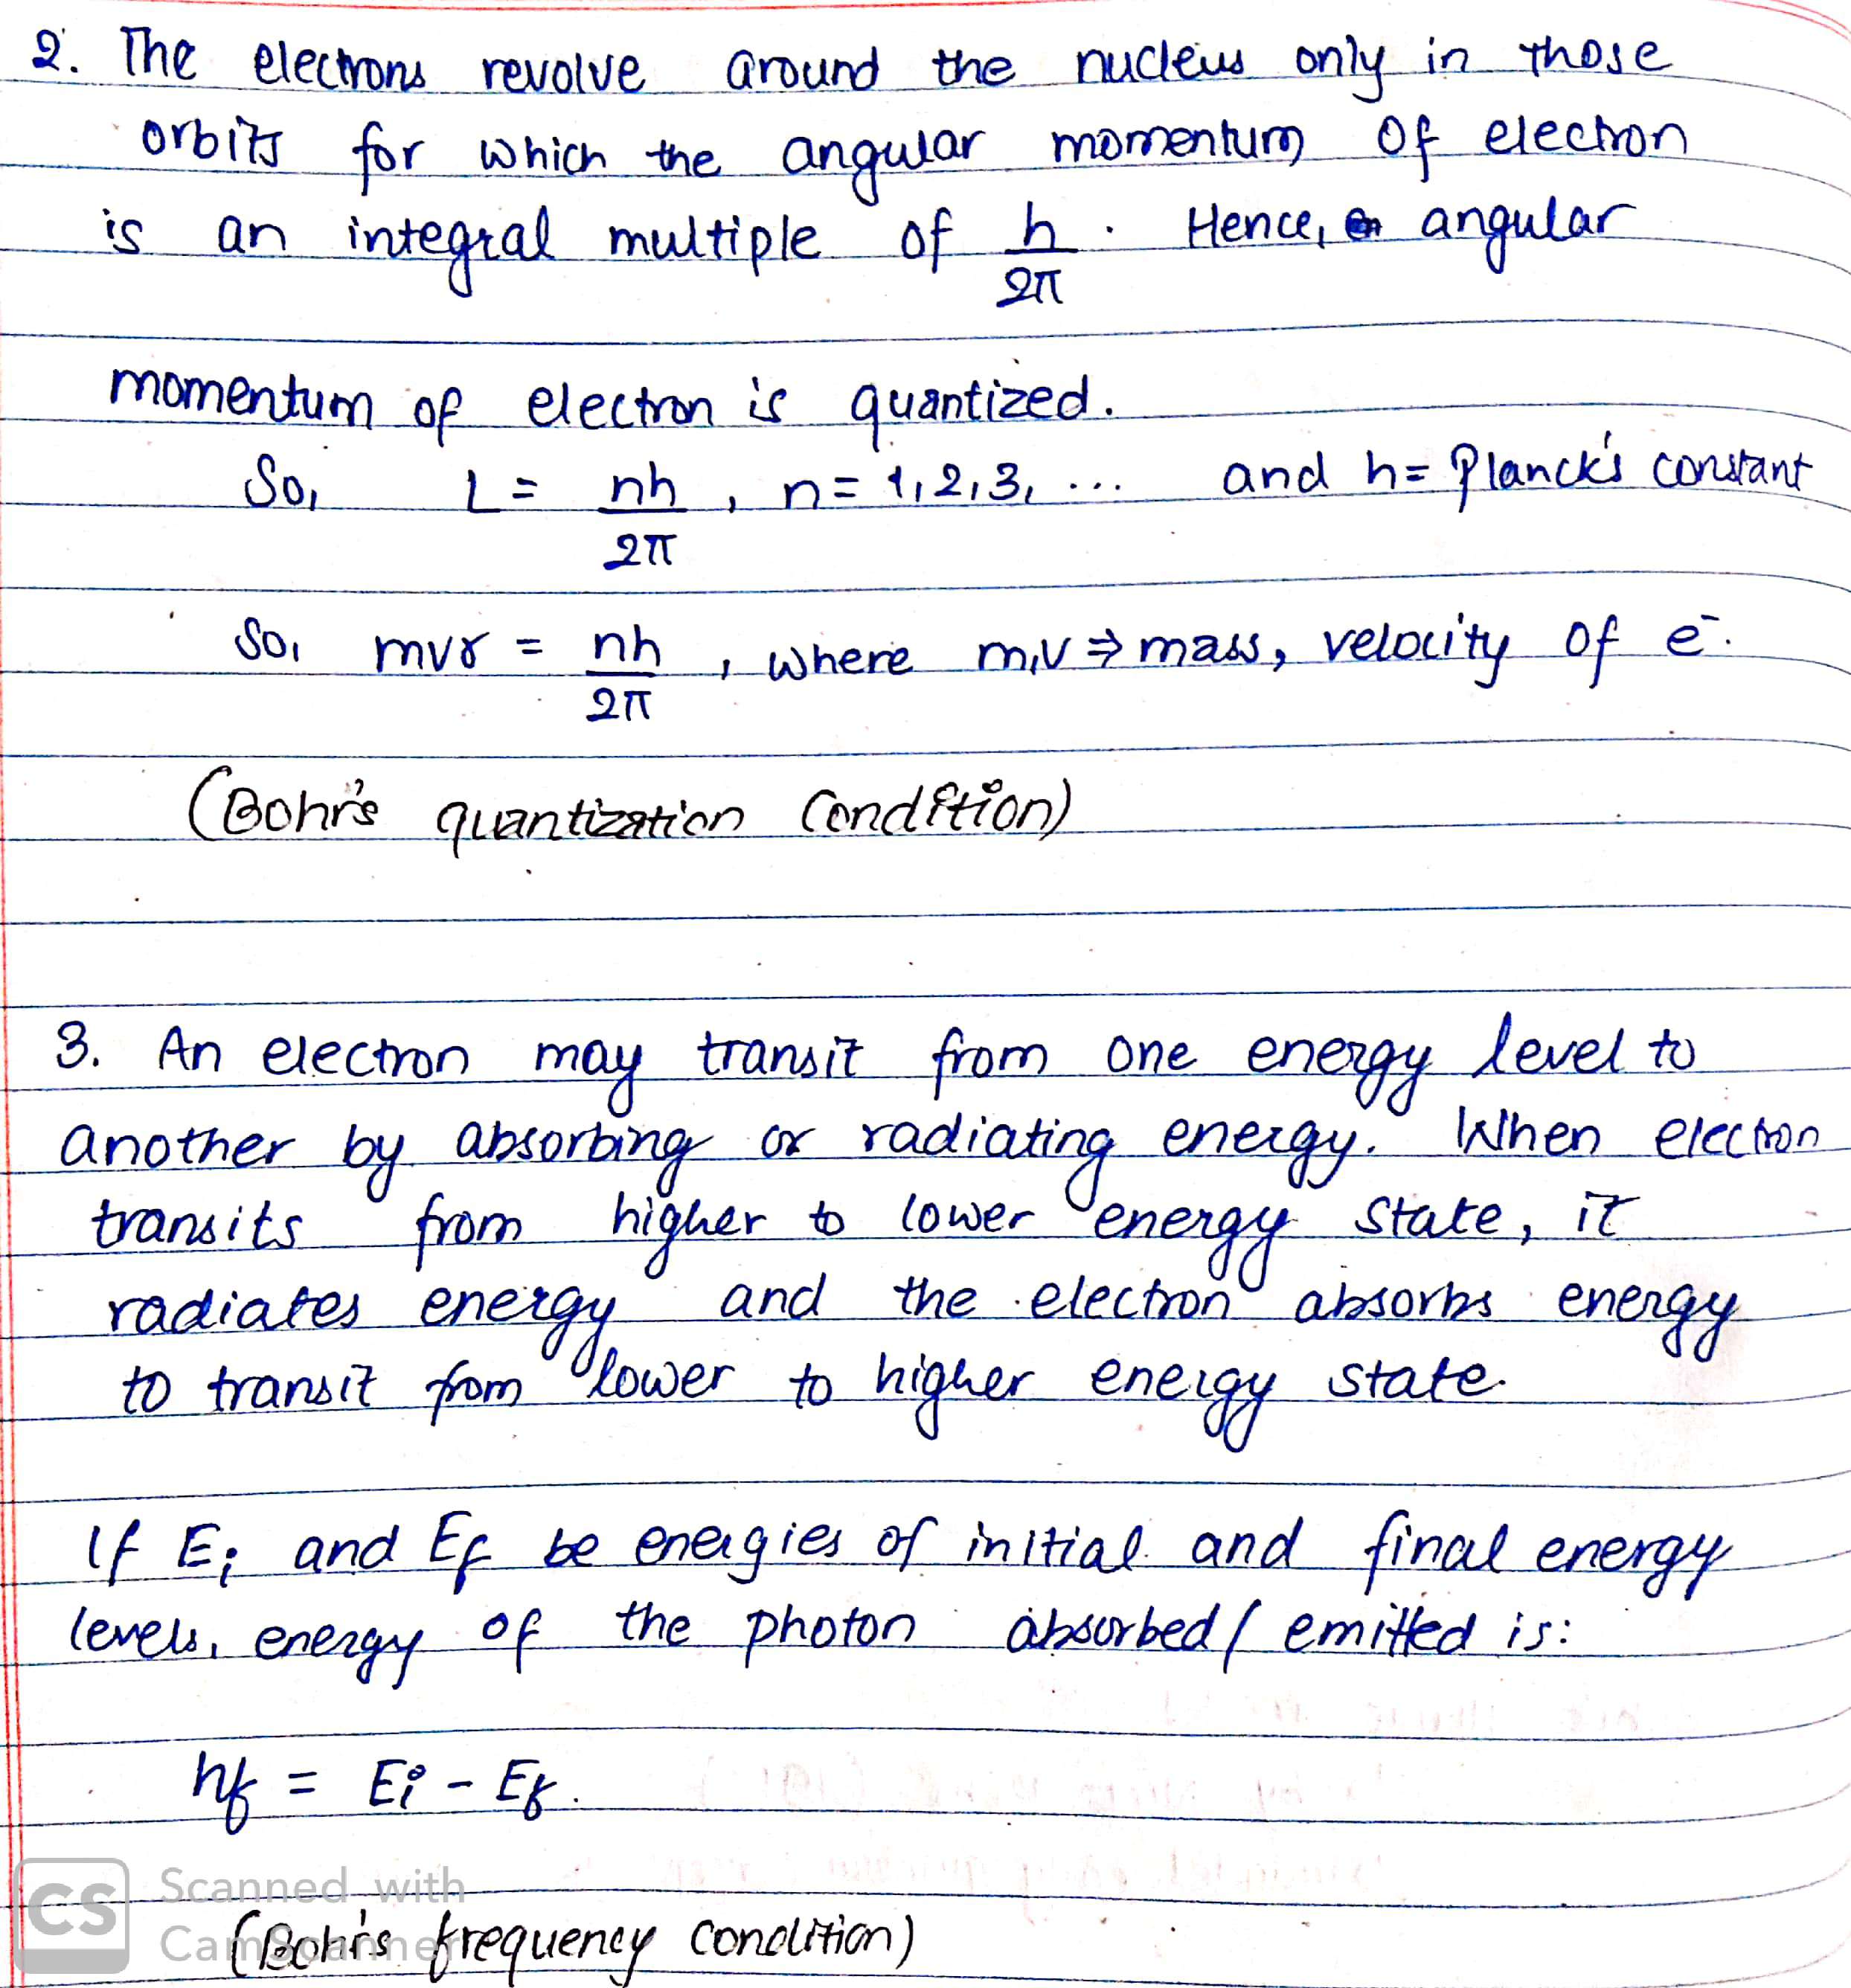 2. The electrons revolve around the nucleus only in those
orbits for which the angular momentum of electron
is an integral multiple of h/2π. Hence, angular
momentum of electron is quantized.
So, L = nh/2π, n = 1,2,3, ... and h = Planck's constant
So, mvr = nh/2π, where m,v ⇒ mass, velocity of e⁻.
(Bohr's quantization condition)
3. An electron may transit from one energy level to
another by absorbing or radiating energy. When electron
transits from higher to lower energy state, it
radiates energy and the electron absorbs energy
to transit from lower to higher energy state.
If Ei and Ef be energies of initial and final energy
levels, energy of the photon absorbed/emitted is:
hf = Ei - Ef.
CS Scanned with
CamScanner
(Bohr's frequency condition)